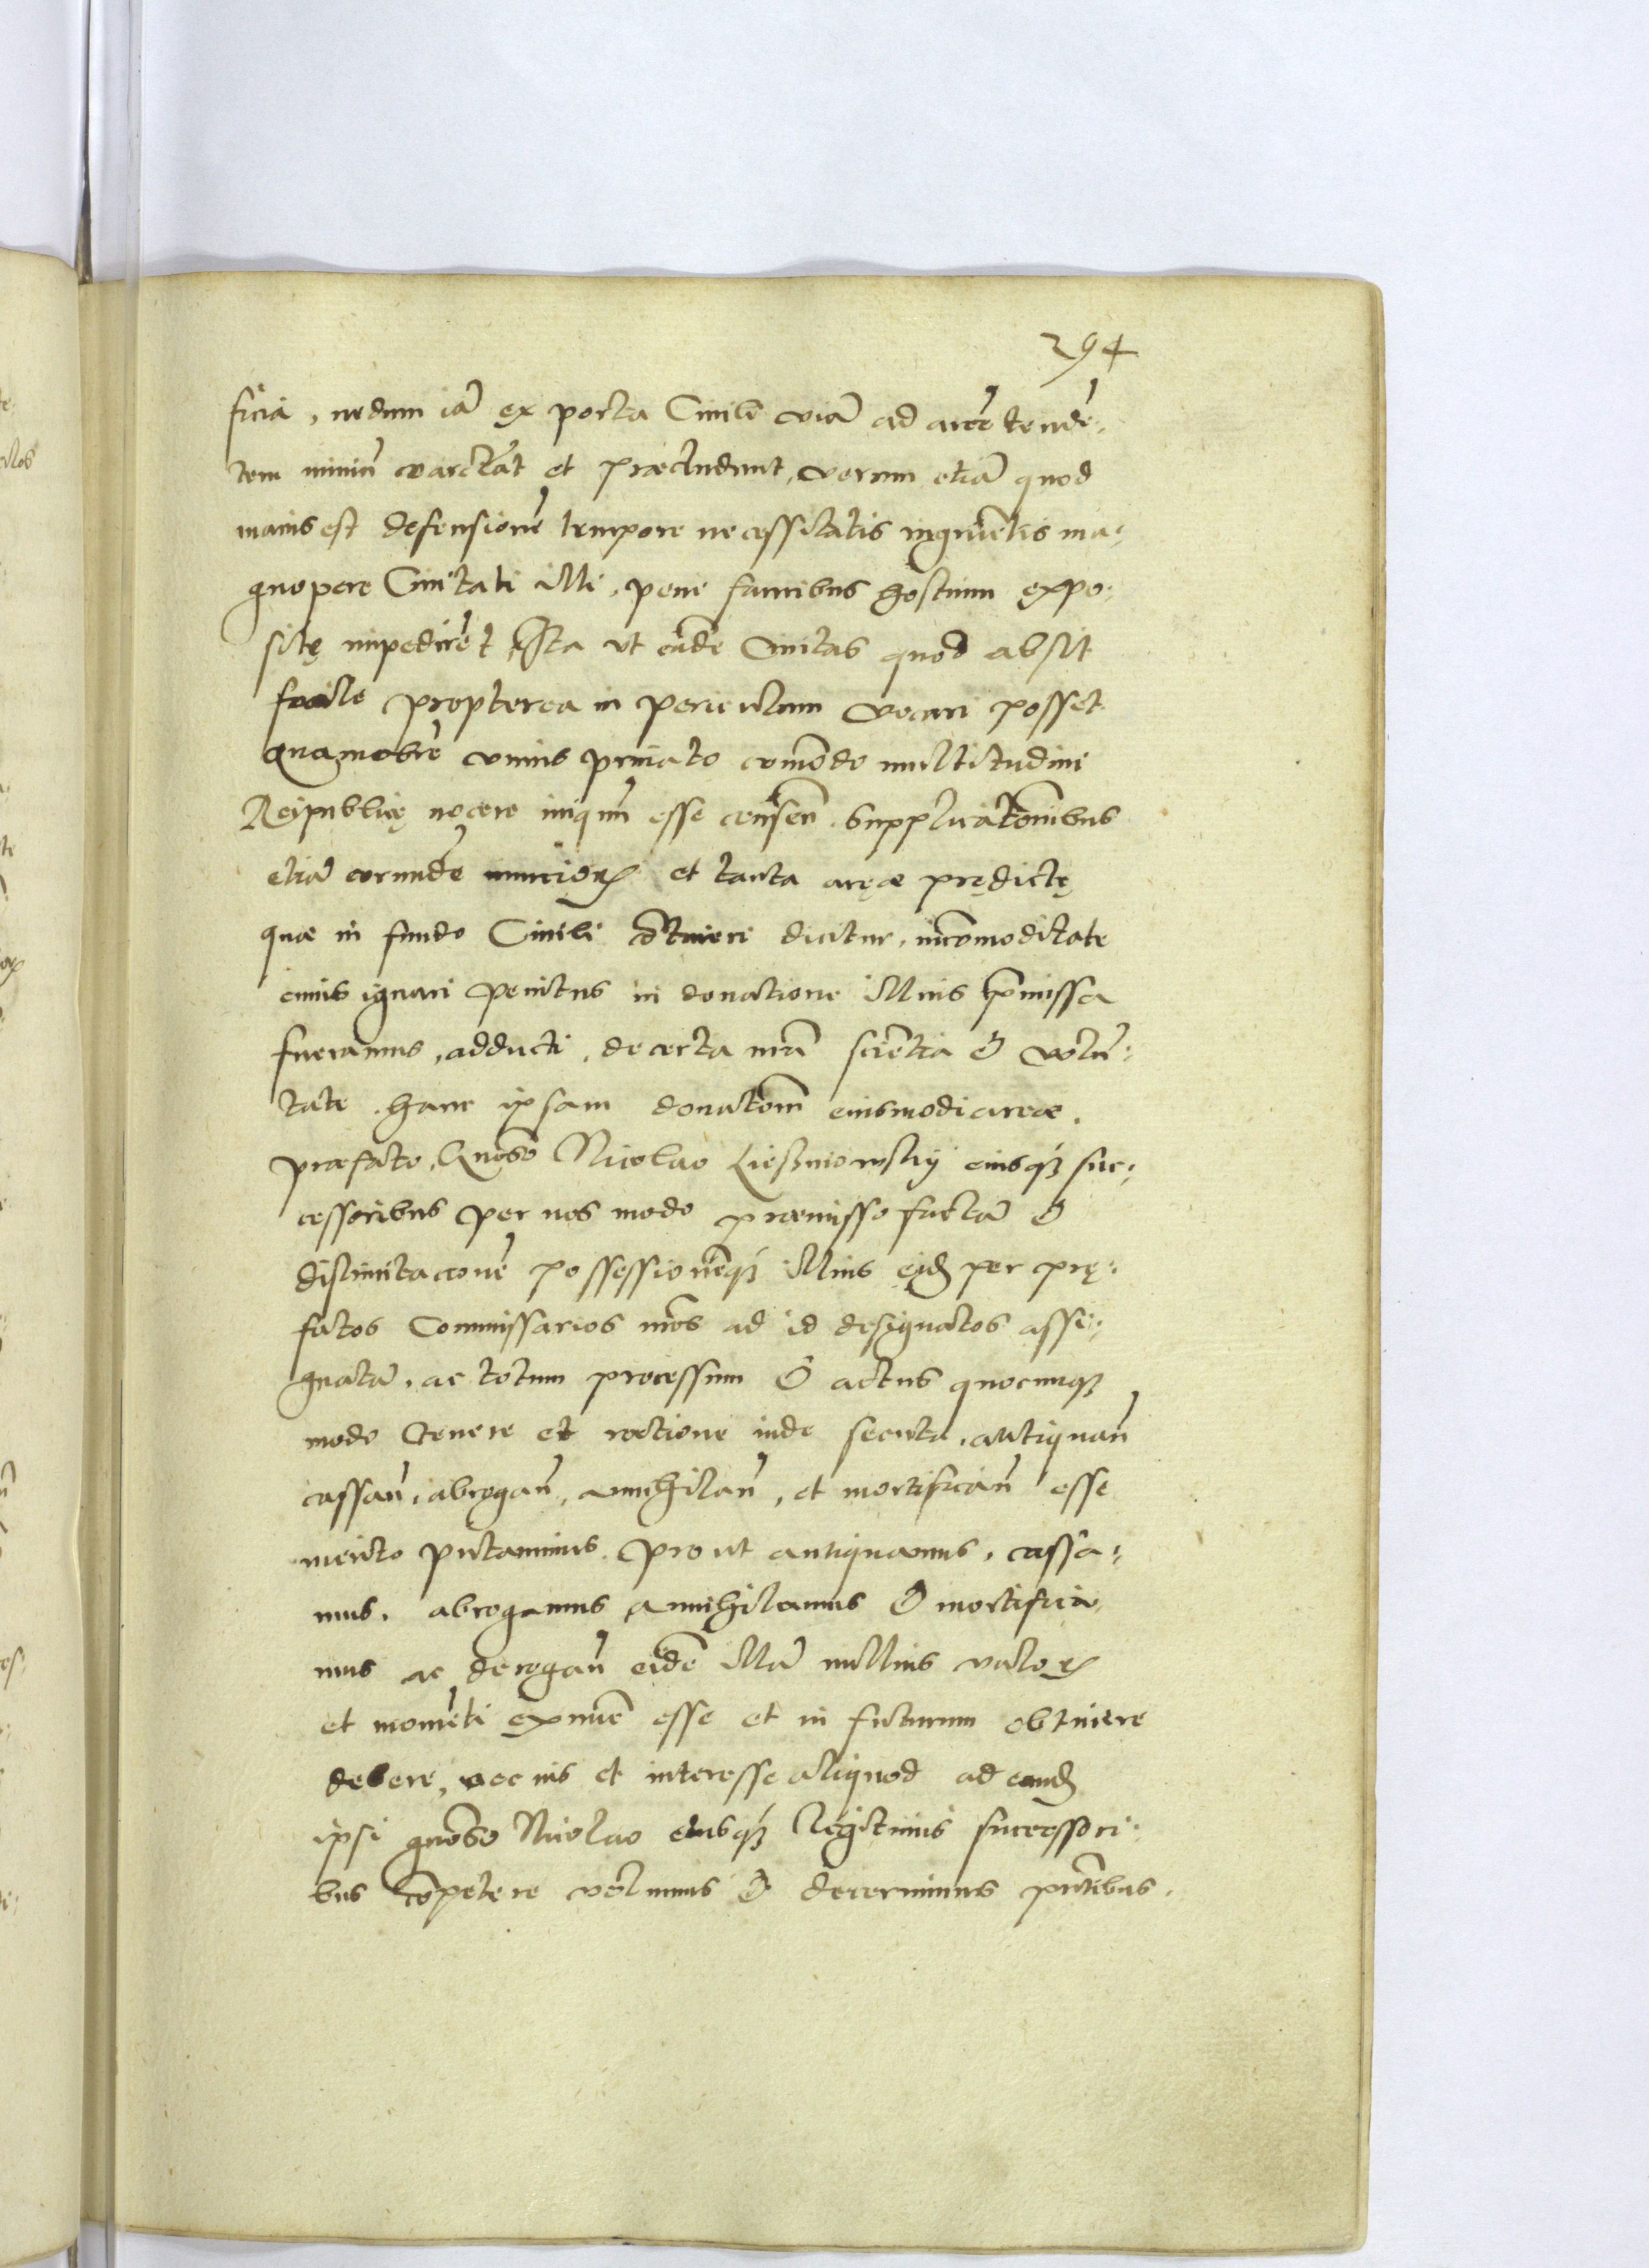 294
ficia, nedum iā ex porta Civili viā ad arcē tendē,
tem nimiū coarctāt et præcludunt, verum etiā quod
maius est defensionē tempore necessitatis ingruētis ma:
gnopere Civitati illi, pene faucibus hostium expo:
sitę impedirēt Ita ut eadē Civitas quod absit
facile propterea in periculum vocari posset
quamobrē unius privato cōmodo multitudini
Reipublicę nocere iniquū esse censeň. Supplicatōnibus
etiā eorundē nuncioꝝ et tanta aręæ prędictę
quæ in fundo Civili cōtineri dicitur, incōmoditate
cuius ignari penitus in donatione illius p̄missa
fueramus, adducti, de certa nr̄a sciētia & volū:
tate hanc ipsam donatōm̄ eiusmodi areæ.
præfato, Gnōso Nicolao Liesniowskij eiusq́ȝ suc:
cessoribus per nos modo præmisso factā &
dislimitacionē possessionēq́ȝ illius eid per prę:
fatos Commissarios nr̄os ad id designatos assi:
gnatā, ac totum processum & actus quocunqȝ
modo tenere et ractione inde secuta, antiquaň
cassaň, abrogaň, annihilaň, et mortificaň esse
merito putavimus, prout antiquamus, cassa:
mus, abrogamus annihilamus & mortifica,
mus ac derogaň eidē illā nullius valoꝝ
et momēti exnūc esse et in futurum obtinere
debere, nec ius et interesse aliquod ad eand
ipsi gnōso Nicolao eiusq́ȝ legitimis successori:
bus cōpetere volumus & decernimus pn̄tibus.